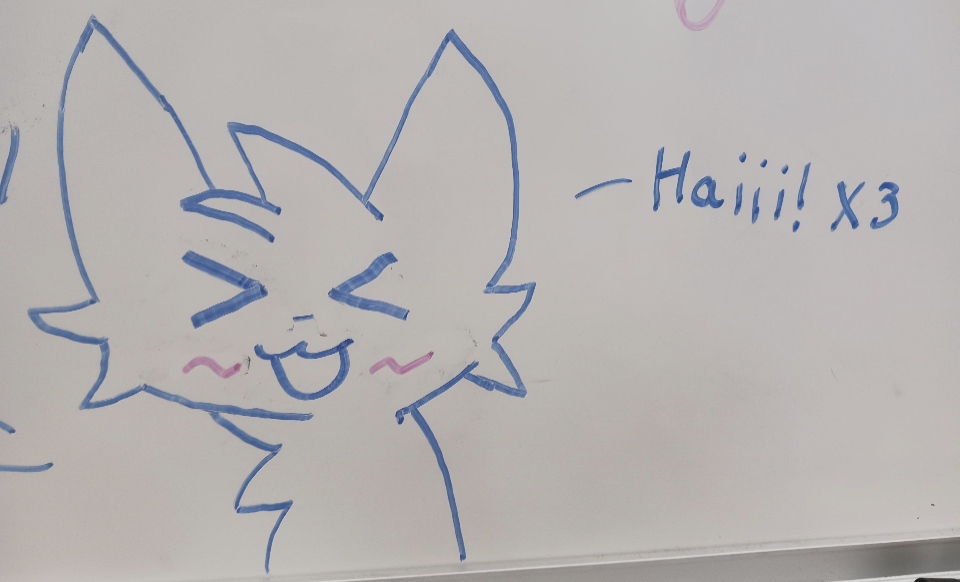 Haiii! X3